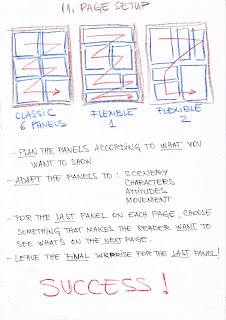 11. PAGE SETUP
CLASSIC
6 PANELS
FLEXIBLE
1
FLEXIBLE
2
- PLAN THE PANELS ACCORDING TO WHAT YOU
WANT TO SHOW
- ADAPT THE PANELS TO: SCENERY
CHARACTERS
ATTITUDES
MOVEMENT
- FOR THE LAST PANEL ON EACH PAGE, CHOOSE
SOMETHING THAT MAKES THE READER WANT TO
SEE WHAT'S ON THE NEXT PAGE.
- LEAVE THE FINAL SURPRISE FOR THE LAST PANEL!
SUCCESS!